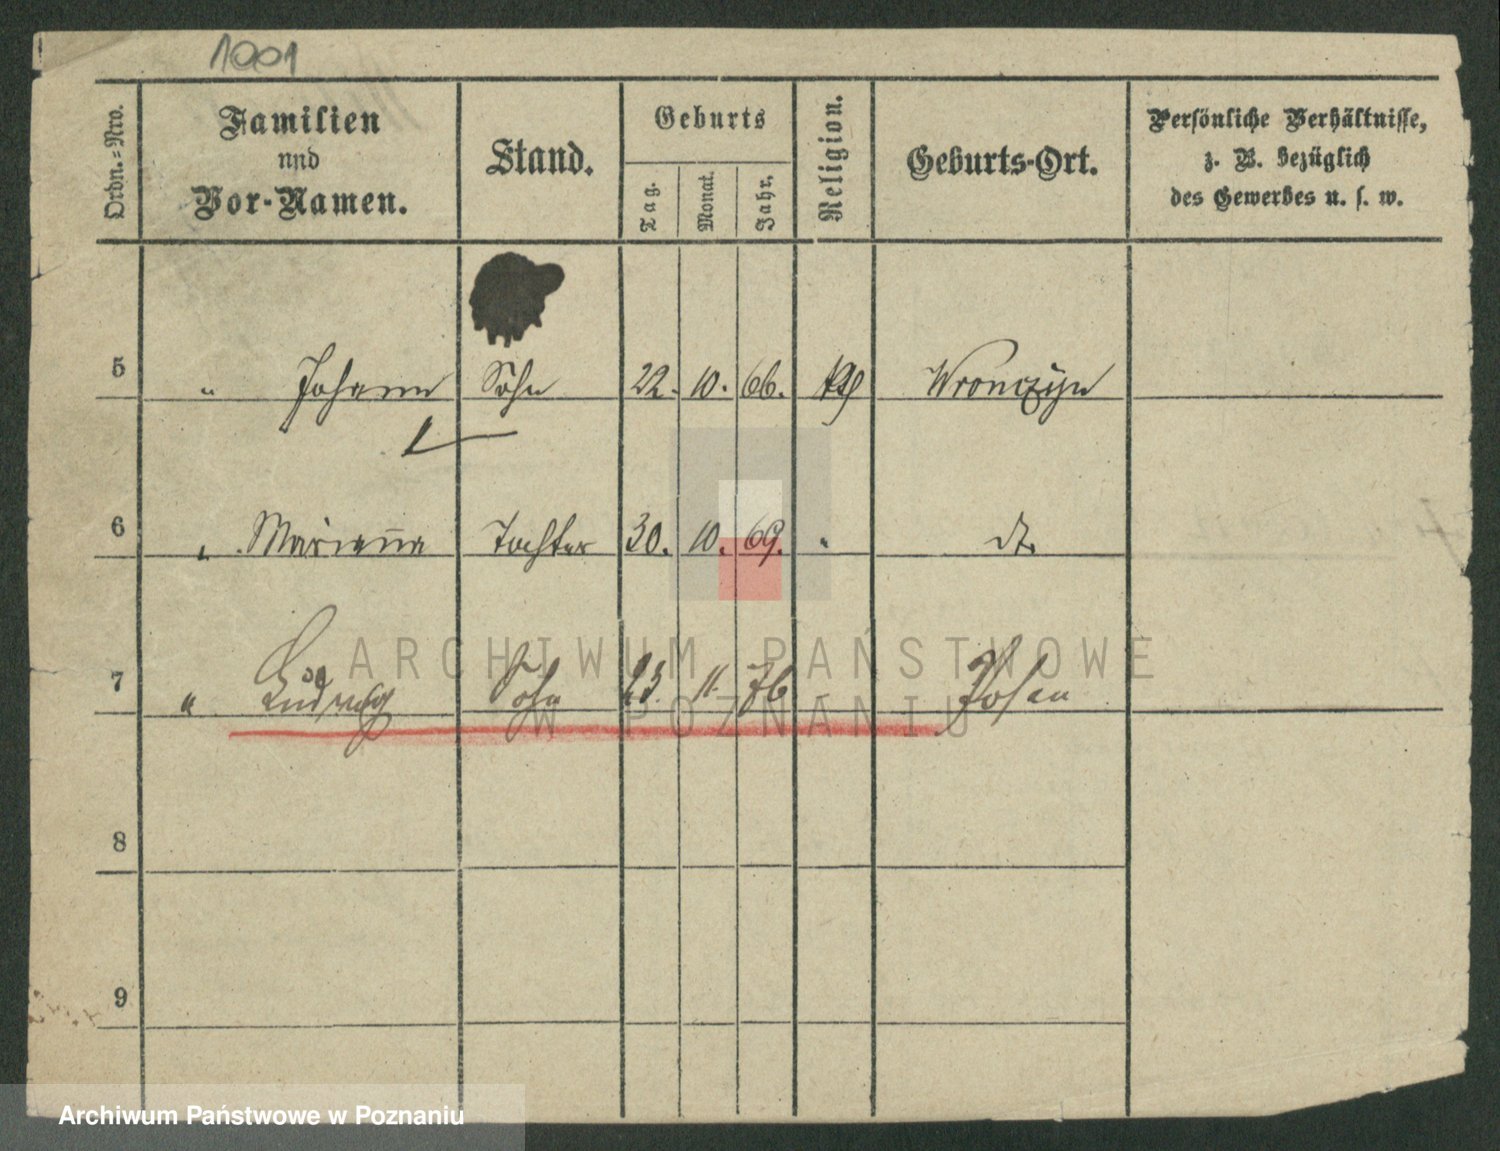 1001
Ordn.=Nro.
Familien
und
Vor-Namen.
Stand.
Geburts
Tag.
Monat.
Jahr.
Religion.
Geburts-Ort.
Persönliche Verhältnisse,
z. B. bezüglich
des Gewerbes u. s. w.
5 " Johann Sohn 22. 10. 66. Wronczyn
6 " Marianna Tochter 30. 10. 69. " dto
7 " Ludwig Sohn 23. 11. 76 Posen
8
9
ARCHIWUM PAŃSTWOWE
W POZNANIU
Archiwum Państwowe w Poznaniu